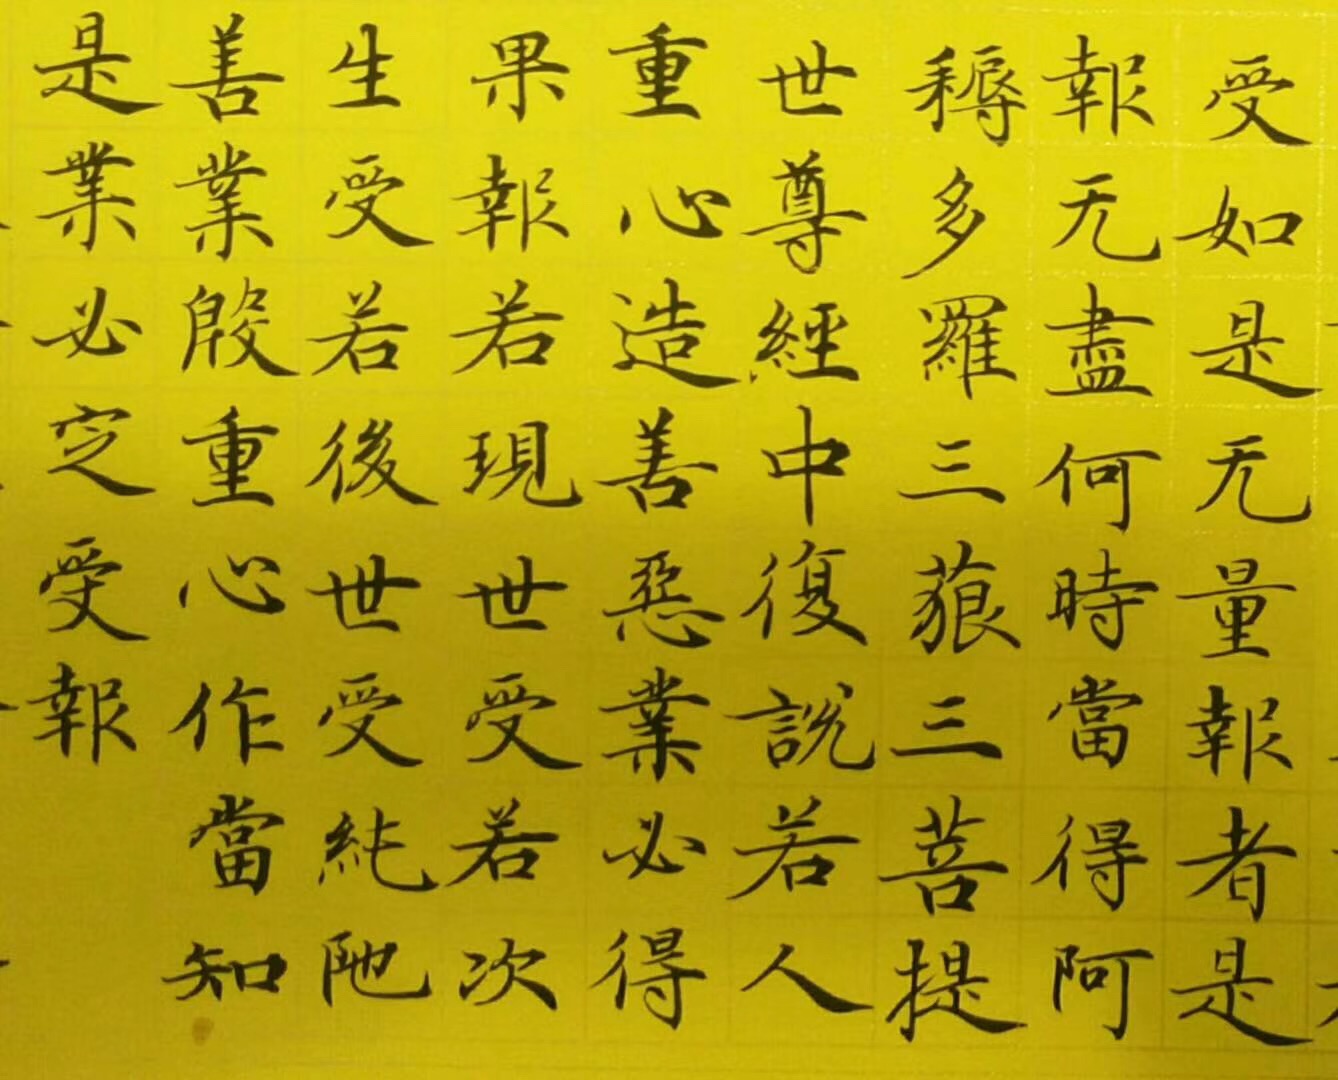 受如是无量報者是
報无盡何時當得阿
耨多羅三藐三菩提
世尊經中復説若人
重心造善惡業必得
果報若現世受若次
生受若後世受純陁
善業殷重心作當知
是業必定受報